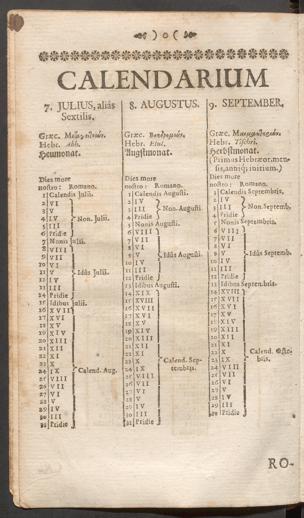 )o(
CALENDARIUM
7. JULIUS, aliàs
Sextilis.
Græc.
Hebr. Abh.
Heumonat.
Dies more
nostro: Romano.
1 Calendis Julii.
2 VI
3 V
4 IV
5 III
6 Pridie
Non. Julii.
7 Nonis Julii.
8 VIII
9 VII
10 VI
11 V
12 IV
13 III
14 Pridie
Idûs Julii.
15 Idibus Julii.
16 XVII
17 XVI
18 XV
19 XIV
20 XIII
21 XII
22 XI
23 X
24 IX
25 VIII
26 VII
27 VI
28 V
29 IV
30 III
31 Pridie
Calend. Aug.
8. AUGUSTUS.
Græc.
Hebr. Elul.
Augstmonat.
Dies more
nostro: Romano.
1 Calendis Augusti.
2 IV
3 III
4 Pridie
Non. Augusti.
5 Nonis Augusti.
6 VIII
7 VII
8 VI
9 V
10 IV
11 III
12 Pridie
Idûs Augusti.
13 Idibus Augusti.
14 XIX
15 XVIII
16 XVII
17 XVI
18 XV
19 XIV
20 XIII
21 XII
22 XI
23 X
24 IX
25 VIII
26 VII
27 VI
28 V
29 IV
30 III
31 Pridie
Calend. Sep-
tembris.
9. SEPTEMBER.
Græc.
Hebr. Tischri.
Herbstmonat.
(Primus Hebræor. men-
sis, antiq; initium.)
Dies more
nostro: Romano.
1 Calendis Septembris.
2 IV
3 III
4 Pridie
Non. Septemb.
5 Nonis Septembris.
6 VIII
7 VII
8 VI
9 V
10 IV
11 III
12 Pridie
Idûs Septemb.
13 Idibus Septembris.
14 XVIII
15 XVII
16 XVI
17 XV
18 XIV
19 XIII
20 XII
21 XI
22 X
23 IX
24 VIII
25 VII
26 VI
27 V
28 IV
29 III
30 Pridie
Calend. Octo-
bris.
RO-